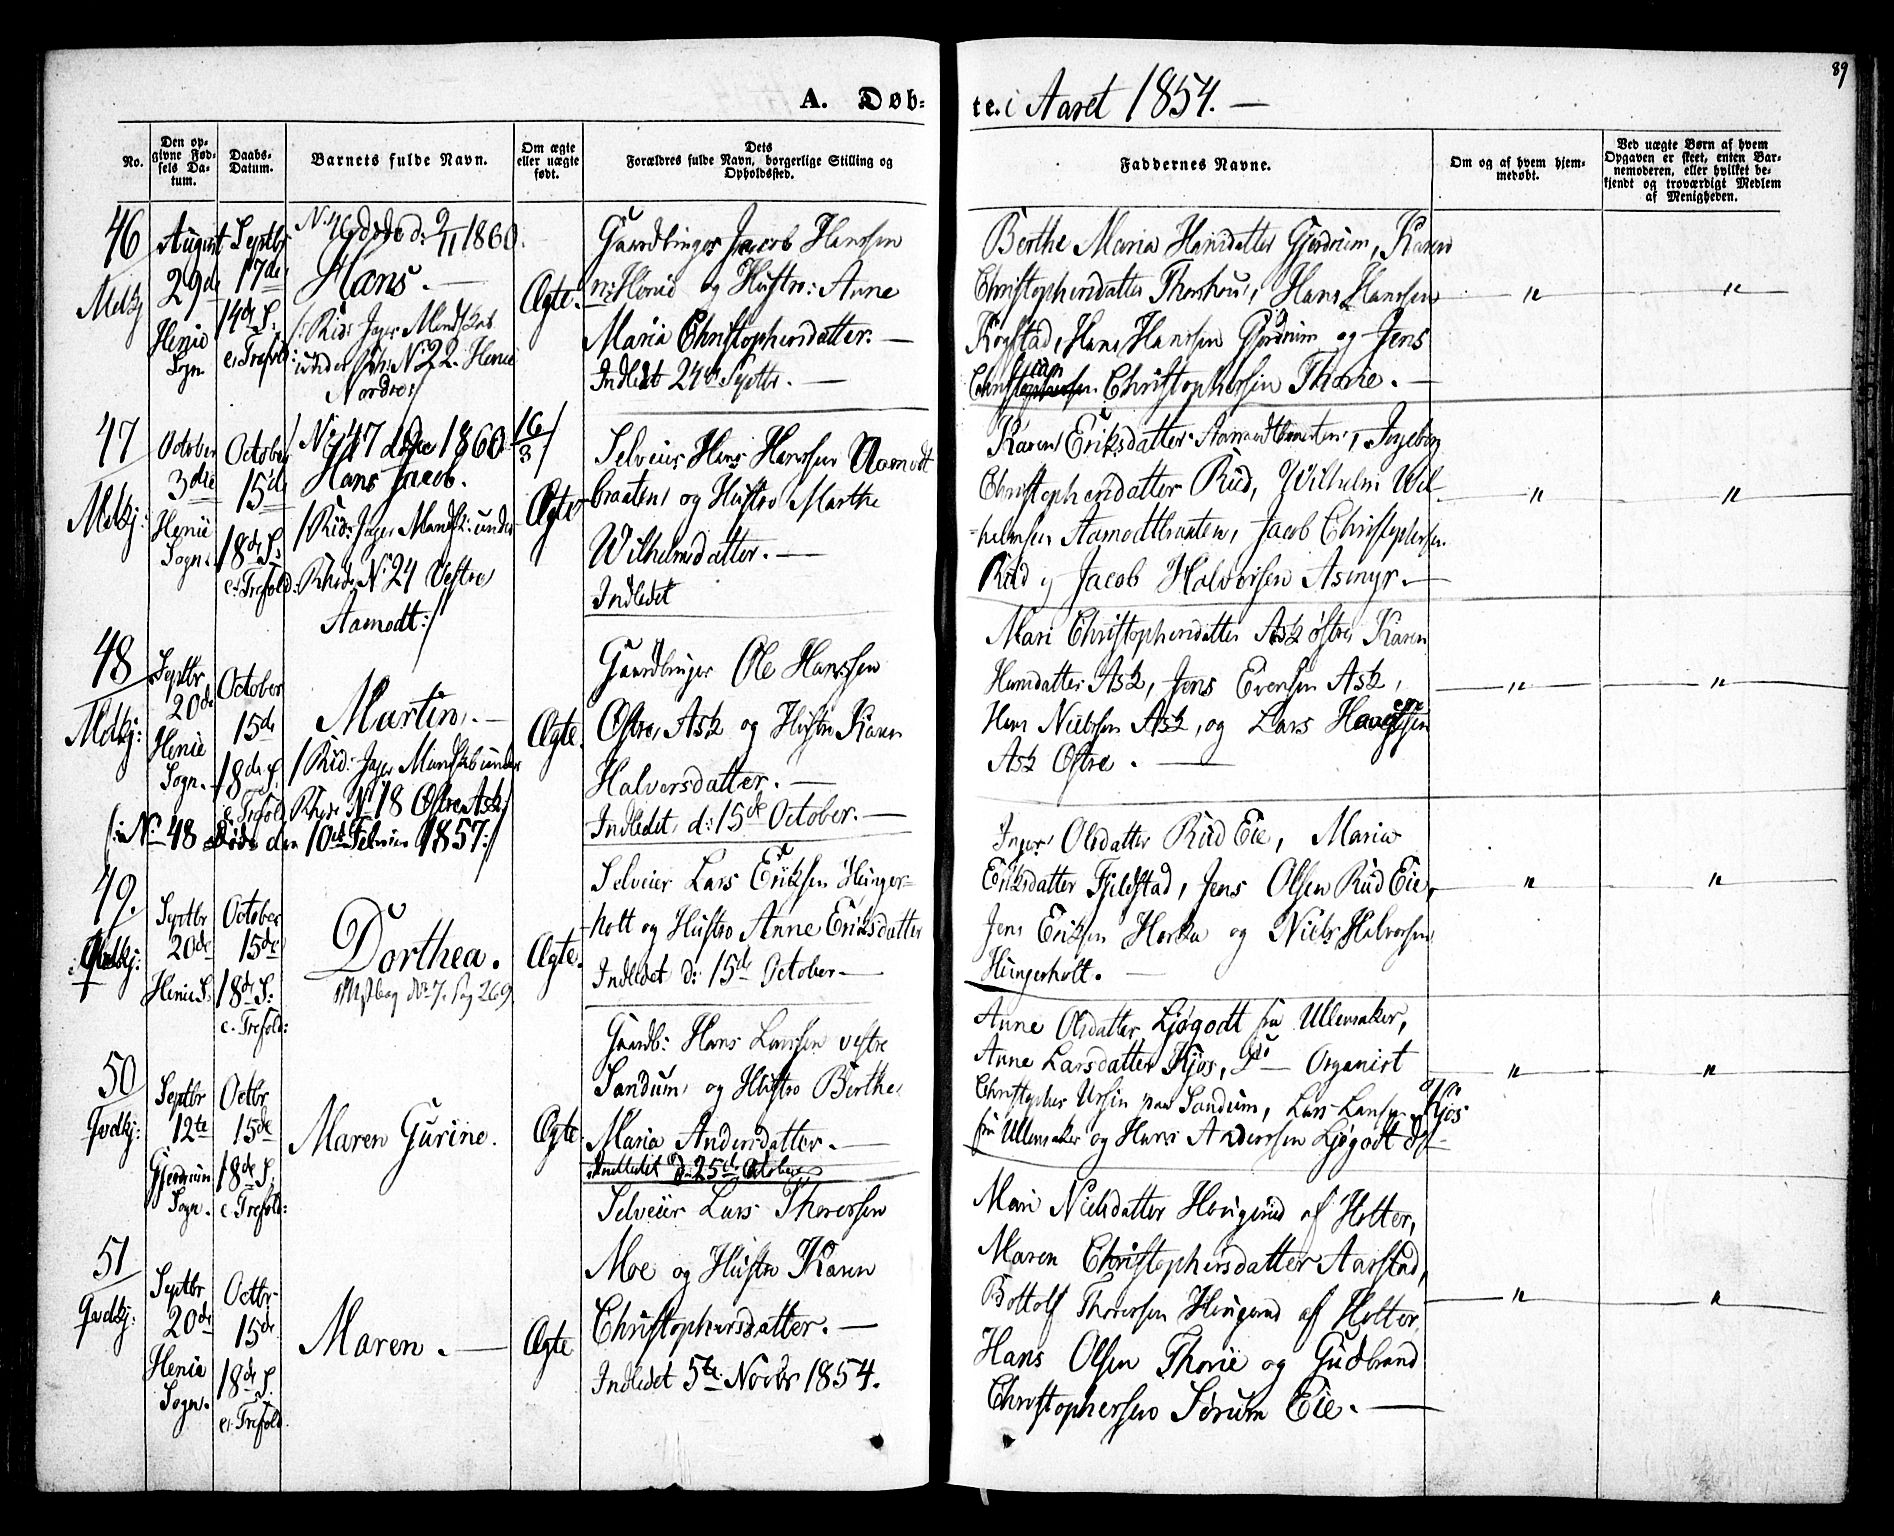 89
A. Døb-
te. i Aaret 1854. —
No.
Den op-
givne Fød-
sels Da-
tum.
Daabs-
Datum.
Barnets fulde Navn.
Om ægte
eller uægte
født.
Dets
Forældres fulde Navn, borgerlige Stilling og
Opholdssted.
Faddernes Navne.
Om og af hvem hjem-
medøbt.
Ved uægte Børn af hvem
Opgaven er skeet, enten Bar-
nemoderen, eller hvilket be-
kjendt og troværdigt Medlem
af Menigheden.
46
August
29de
Henie
Sogn
Septbr
17de
14de S:
e. Trefold:
No 46 døde d: 9/11 1860.
Hans. —
/: Rid: Jæger Mandskab
under No 22. Henie
Nordre:/
Ægte.
Gaardbruger Jacob Hanssen
n: Henie og Hustro: Anne
Maria Christophersdatter. —
Indledet 24de Septbr. —
Berthe Maria Hansdatter Gjerdrum, Karen
Christophersdatter, Hans Hanssen
Kogstad, Hans Hanssen Gjerdrum og Jens
Christophersen Thorie. —
"
"
47
October
3die
Henie
Sogn.
October
15de
18de S:
e: Trefold:
/No 47 døde 1860 16/3/
Hans Jacob.
/Rid: Jæger Mandsk: under
No 24 Vestre
Aamodt:/
Ægte
Selveier Hans Hanssen Aamodt
braaten og Hustro Marthe
Wilhelmsdatter. —
Indledet
Karen Eriksdatter Aamodtbraaten, Ingeborg
Christophersdatter Rud, Wilhelm Wil-
-helmsen Aamodtbraaten, Jacob Christophersen
Rud og Jacob Halvorsen Asmyr. —
"
"
48
Septbr
20de
Henie
Sogn.
October
15de
18de S.
e. Trefold
Martin. —
/Rid: Jæger Mandskab under
No 18 Østre Ask/
/: No 48 døde den 10de 1857:/
Ægte.
Gaardbruger Ole Hanssen
Østre Ask og Hustro Karen
Halvorsdatter. —
Indledet d: 15de October. —
Mari Christophersdatter Ask østre, Karen
Hansdatter Ask, Jens Evensen Ask,
Hans Nielssen Ask, og Lars
Ask Østre. —
"
"
49.
Septbr
20de
Henie S:
October
15de
18de S:
e. Trefold:
Dorthea.
No 7. Pag 269
Ægte.
Selveier Lars Eriksen Hunger-
holt og Hustro Anne Eriksdatter
Indledet d: 15de October —
Inger Olsdatter Rud Eie, Maria
Eriksdatter Fjeldstad, Jens Olsen Rud Eie,
Jens Eriksen og Niels Halvorsen
Hungerholt. —
"
"
50
Godkj:
Septbr
12te
Gjerdrum
Sogn.
Octbr
15de
18de S.
e. Trefold:
Maren Gurine.
Ægte
Gaardb: Hans Larssen vestre
Sandum og Hustro Berthe
Maria Andersdatter. —
Indledet d: 25de October
Anne Olsdatter Ljøgodt fra Ullensaker,
Anne Larsdatter Kjos, — Organist
Christopher Ursin paa Sandum, Lars Larsen Kjos
fra Ullensaker og Hans Anderssen Ljøgodt
"
"
51
Godkj:
Septbr
20de
Henie
Sogn.
Octbr
15de
18de S.
e. Trefold.
Maren. —
Ægte
Selveier Lars Thorersen
Moe og Hustro Karen
Christophersdatter. —
Indledet 5te Novbr 1854.
Mari Nielsdatter Haugerud af Holter,
Maren Christophersdatter Aarstad,
Bottolf Thorersen Haugerud af Holter,
Hans Olsen Thorie og Gudbrand
Christophersen Sørum Eie. —
"
"